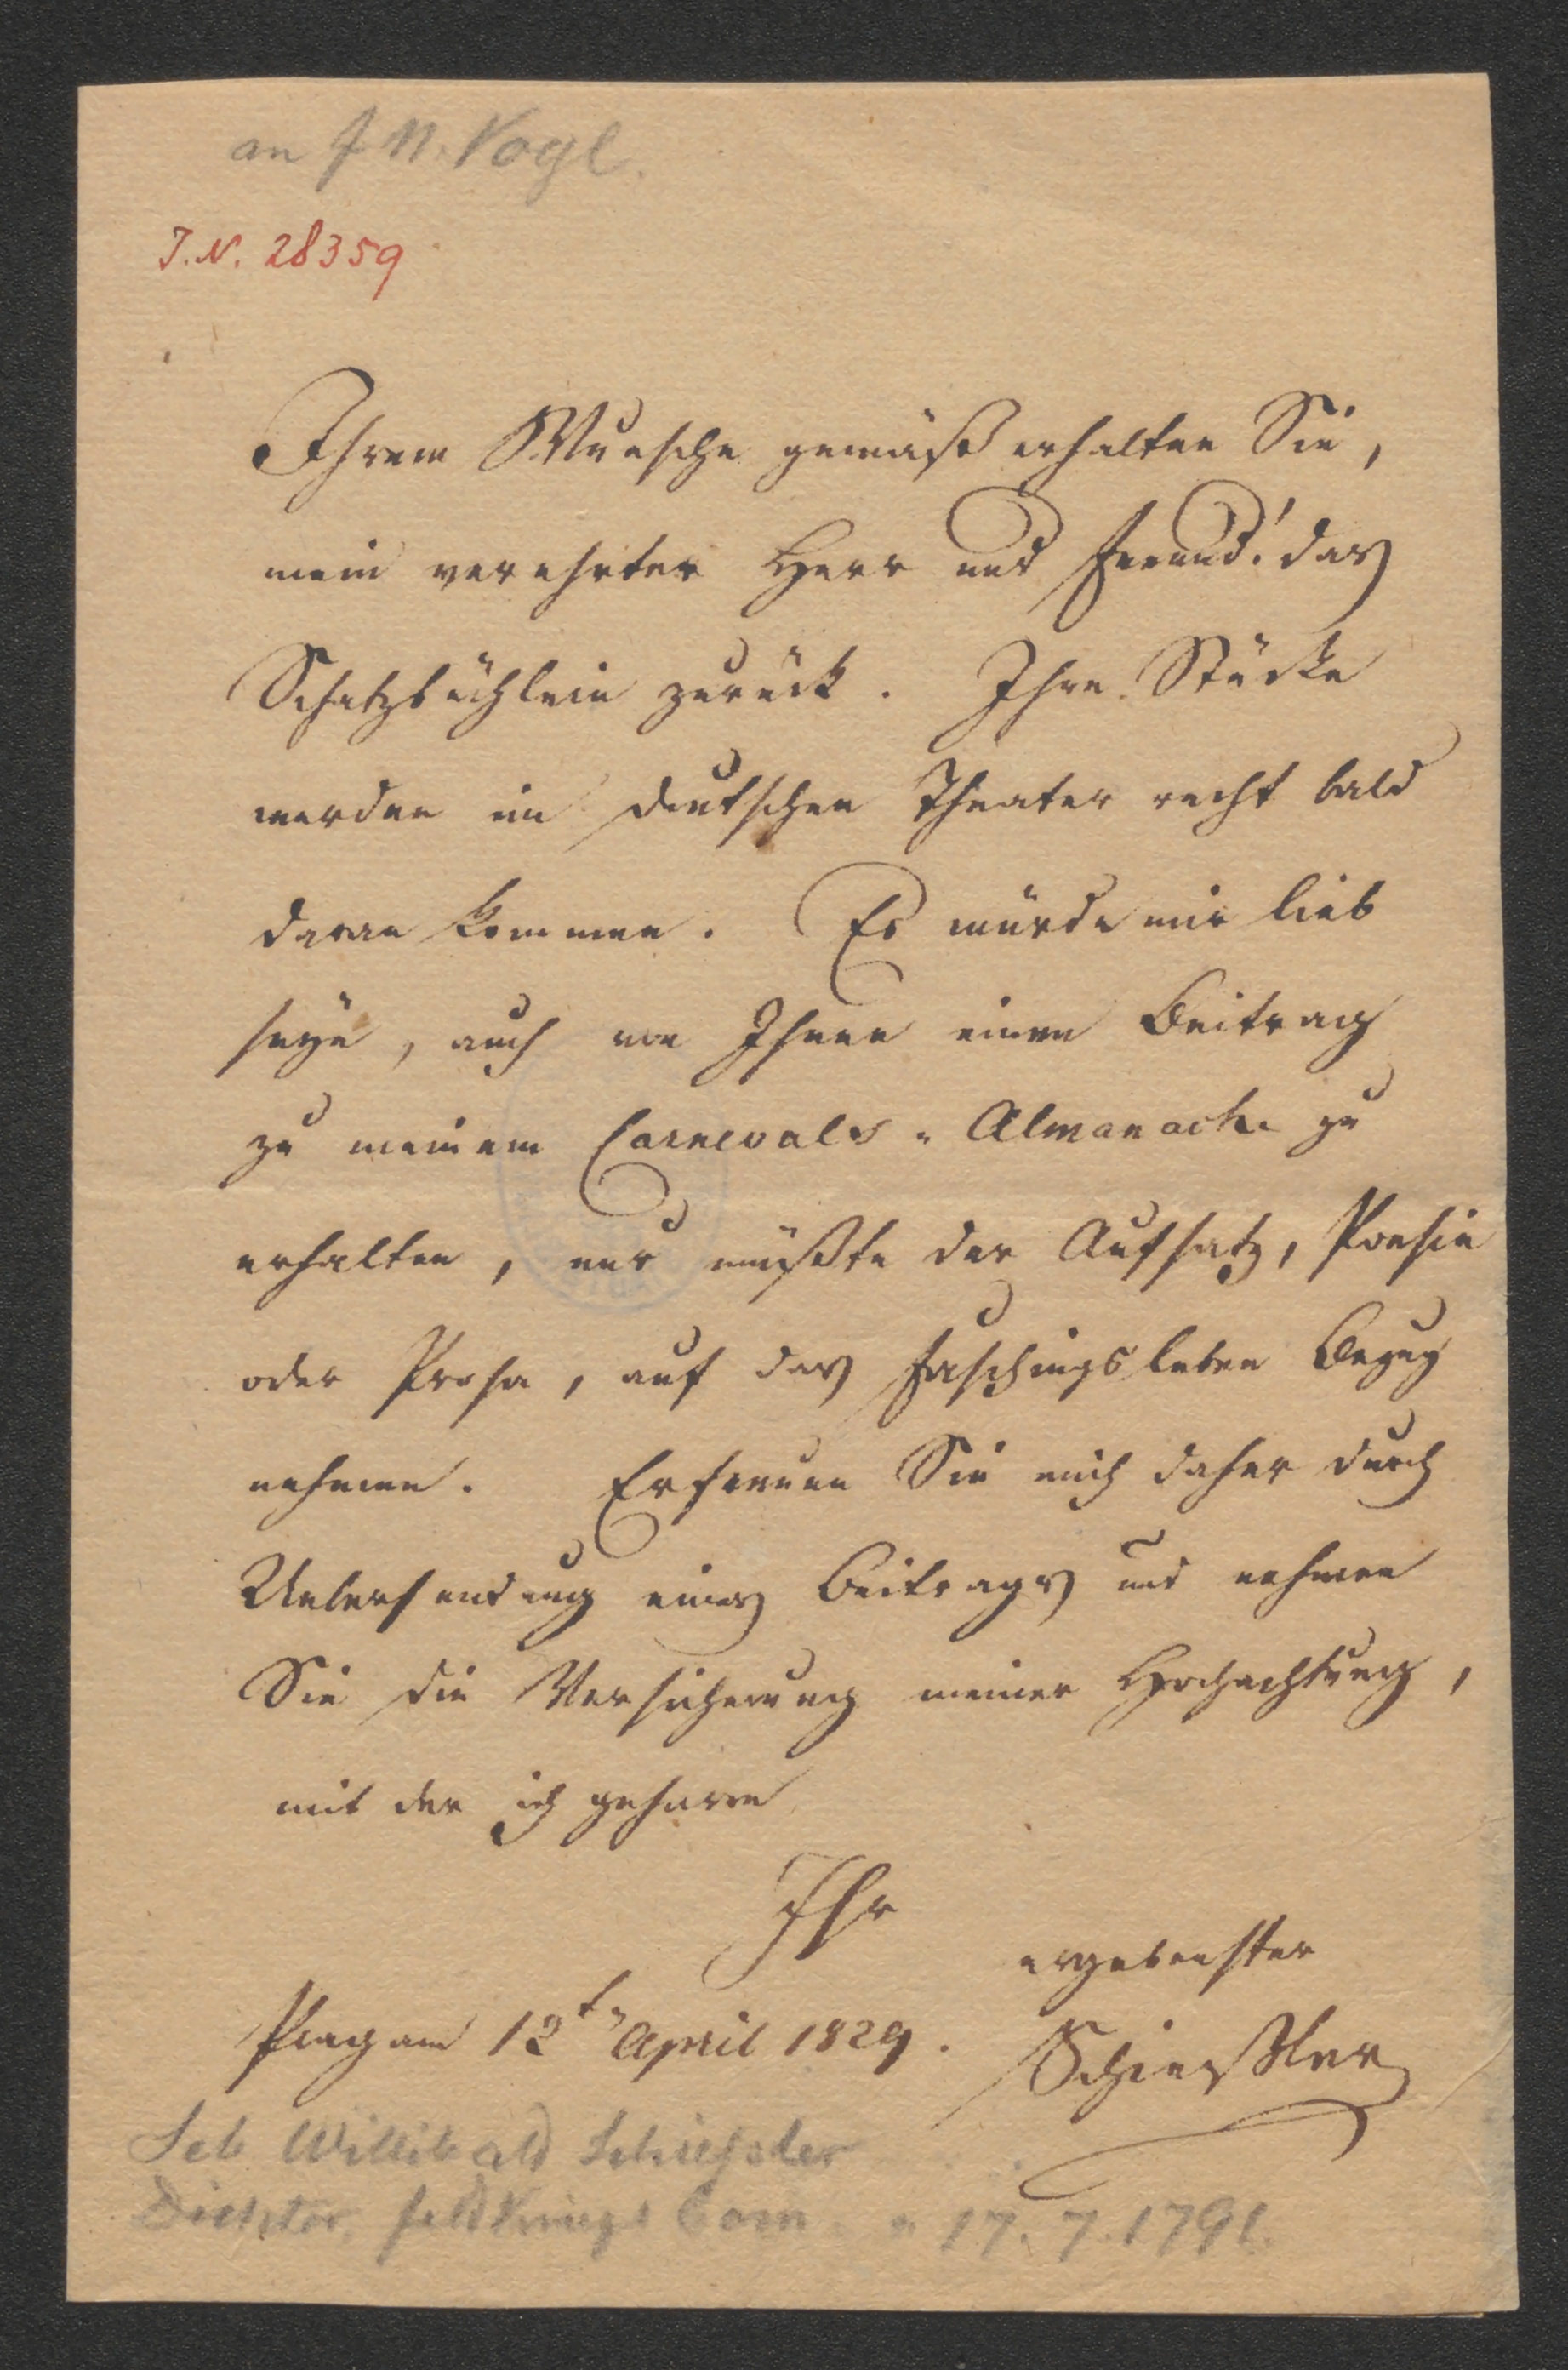 an J N. Vogl.
I.N. 28359
Ihrem Wunsche gemäß erhalten Sie,
mein verehrter Herr und Freund! das
Schatzbüchlein zurück. Ihre Stücke
werden im deutschen Theater recht bald
daran kommen. Es würde mir lieb
seyn, auch von Ihnen einen Beitrag
zu meinem Carnevals-Almanach zu
erhalten, nur müßte der Aufsatz, Poesie
oder Prosa, auf das Faschingsleben Bezug
nehmen. Erfreuen Sie mich daher durch
Uebersendung eines Beitrags und nehmen
Sie die Versicherung meiner Hochachtung,
mit der ich geharre
Ihr
ergebenster
Prag am 12t April 1829.
Schießler
Seb Willibald Schießler
Dichter, Feldkriegs Com 17. 7. 1791.